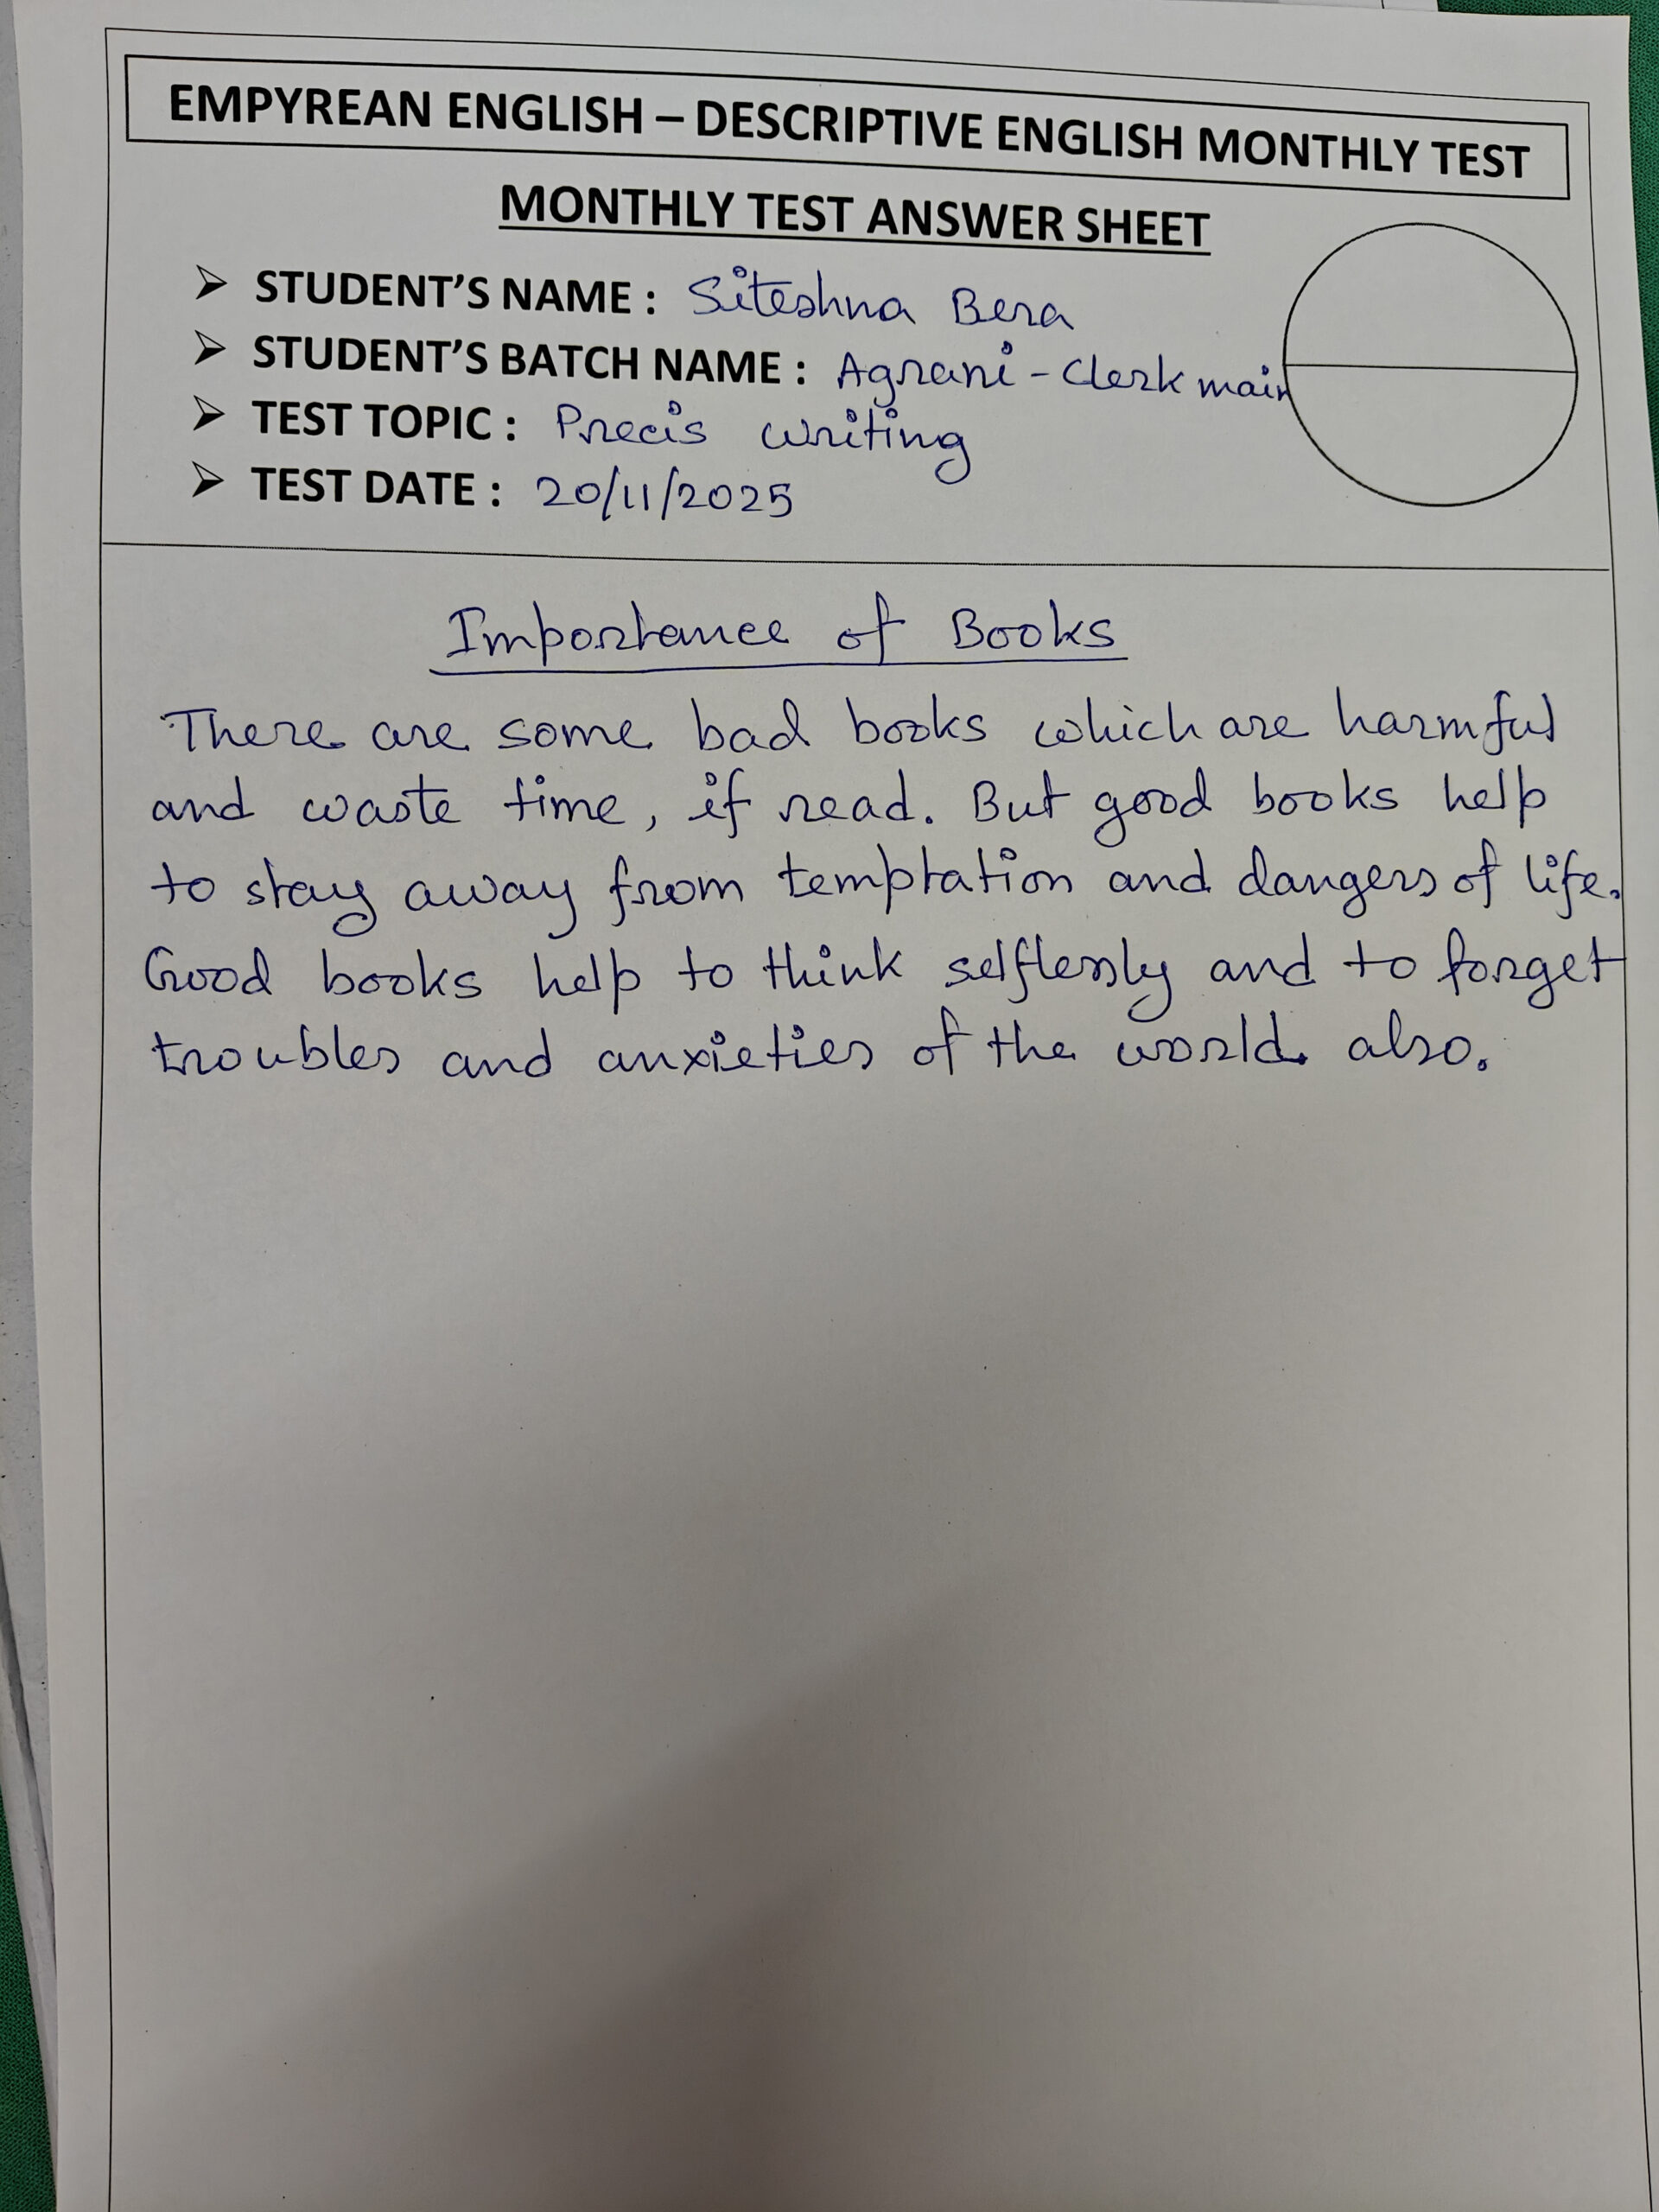 EMPYREAN ENGLISH – DESCRIPTIVE ENGLISH MONTHLY TEST
MONTHLY TEST ANSWER SHEET
➢ STUDENT'S NAME : Siteshna Bera
➢ STUDENT'S BATCH NAME : Agrani - Clerk main
➢ TEST TOPIC : Precis writing
➢ TEST DATE : 20/11/2025
Importance of Books
There are some bad books which are harmful
and waste time, if read. But good books help
to stay away from temptation and dangers of life.
Good books help to think selflessly and to forget
troubles and anxieties of the world also.